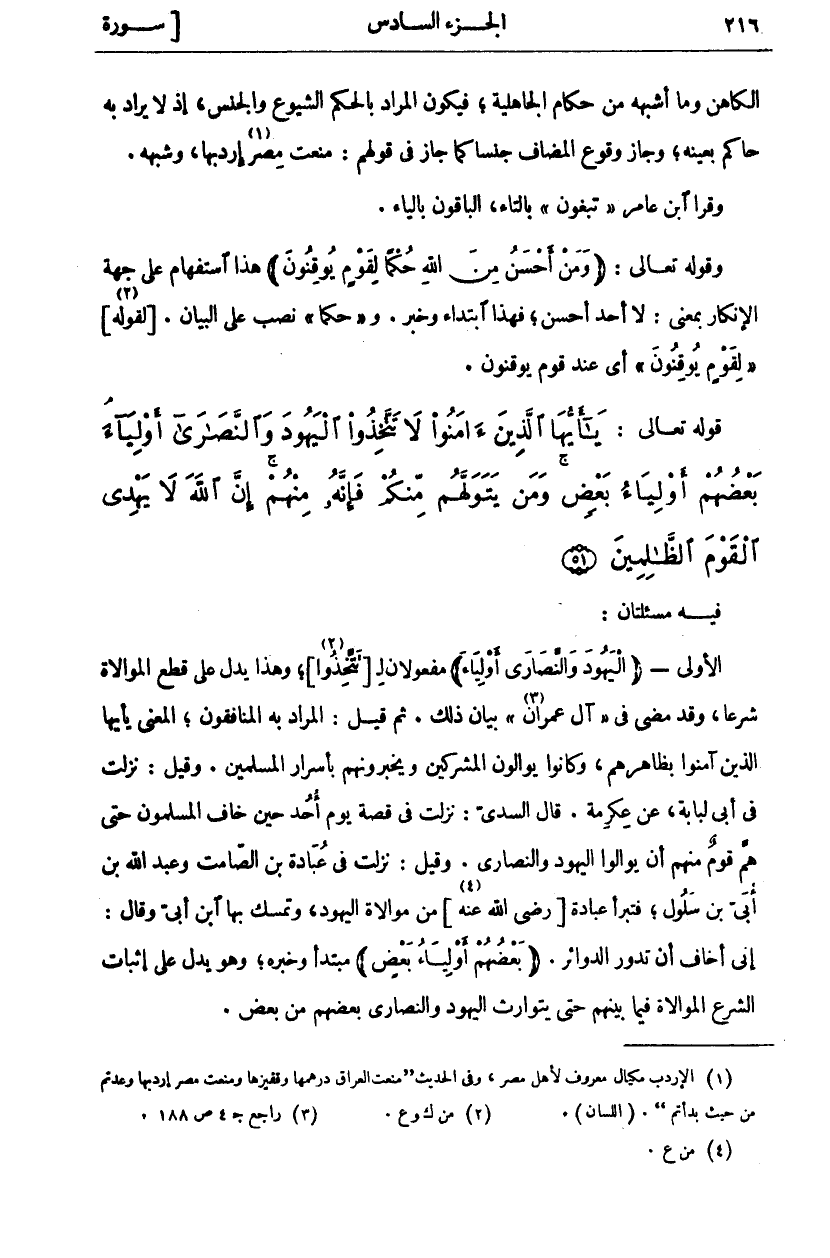 ٢١٦ الجـزء السـادس [ سـورة
الكاهن وما أشبهه من حكام الجاهلية ؛ فيكون المراد بالحكم الشيوع والجنس، إذ لا يراد به
حاكم بعينه؛ وجاز وقوع المضاف جنسا كما جاز فى قولهم : منعت مِصْر إردبها(١)، وشبهه .
وقرأ ابن عامر « تبغون » بالتاء، الباقون بالياء .
وقوله تعـالى : ﴿ وَمَنْ أَحْسَنُ مِنَ اللهِ حُكْمًا لِقَوْمٍ يُوقِنُونَ ﴾ هذا استفهام على جهة
الإنكار بمعنى : لا أحد أحسن ؛ فهذا ابتداء وخبر . و « حكما » نصب على البيان . [لقوله](٢)
« لِقَوْمٍ يُوقِنُونَ » أى عند قوم يوقنون .
قوله تعـالى : يَـٰٓأَيُّهَا ٱلَّذِينَ ءَامَنُوا۟ لَا تَتَّخِذُوا۟ ٱلْيَهُودَ وَٱلنَّصَـٰرَىٰٓ أَوْلِيَآءَ ۘ
بَعْضُهُمْ أَوْلِيَآءُ بَعْضٍ ۚ وَمَن يَتَوَلَّهُم مِّنكُمْ فَإِنَّهُۥ مِنْهُمْ ۗ إِنَّ ٱللَّهَ لَا يَهْدِى
ٱلْقَوْمَ ٱلظَّـٰلِمِينَ ٥١
فيـه مسئلتان :
الأولى — ﴿ الْيَهُودَ وَالنَّصَارَى أَوْلِيَاءَ ﴾ مفعولان لـ[تَتَّخِذُوا](٢)؛ وهذا يدل على قطع الموالاة
شرعا، وقد مضى فى « آل عمران »(٣) بيان ذلك . ثم قيـل : المراد به المنافقون ؛ المعنى يأيها
الذين آمنوا بظاهرهم، وكانوا يوالون المشركين ويخبرونهم بأسرار المسلمين . وقيل : نزلت
فى أبى لبابة، عن عكرمة . قال السدىّ : نزلت فى قصة يوم أُحُد حين خاف المسلمون حتى
همَّ قومٌ منهم أن يوالوا اليهود والنصارى . وقيل : نزلت فى عُبَادة بن الصّامت وعبد الله بن
أُبىّ بن سَلُول ؛ فتبرأ عبادة [ رضى الله عنه ](٤) من موالاة اليهود، وتمسك بها ابن أبىّ وقال :
إنى أخاف أن تدور الدوائر . ﴿ بَعْضُهُمْ أَوْلِيَـاءُ بَعْضٍ ﴾ مبتدأ وخبره؛ وهو يدل على إثبات
الشرع الموالاة فيما بينهم حتى يتوارث اليهود والنصارى بعضهم من بعض .
(١) الإردب مكيال معروف لأهل مصر ، وفى الحديث "منعت العراق درهمها وقفيزها ومنعت مصر إردبها وعدتم
من حيث بدأتم " . ( اللسان ) . (٢) من ك وع . (٣) راجع جـ ٤ ص ١٨٨ .
(٤) من ع .